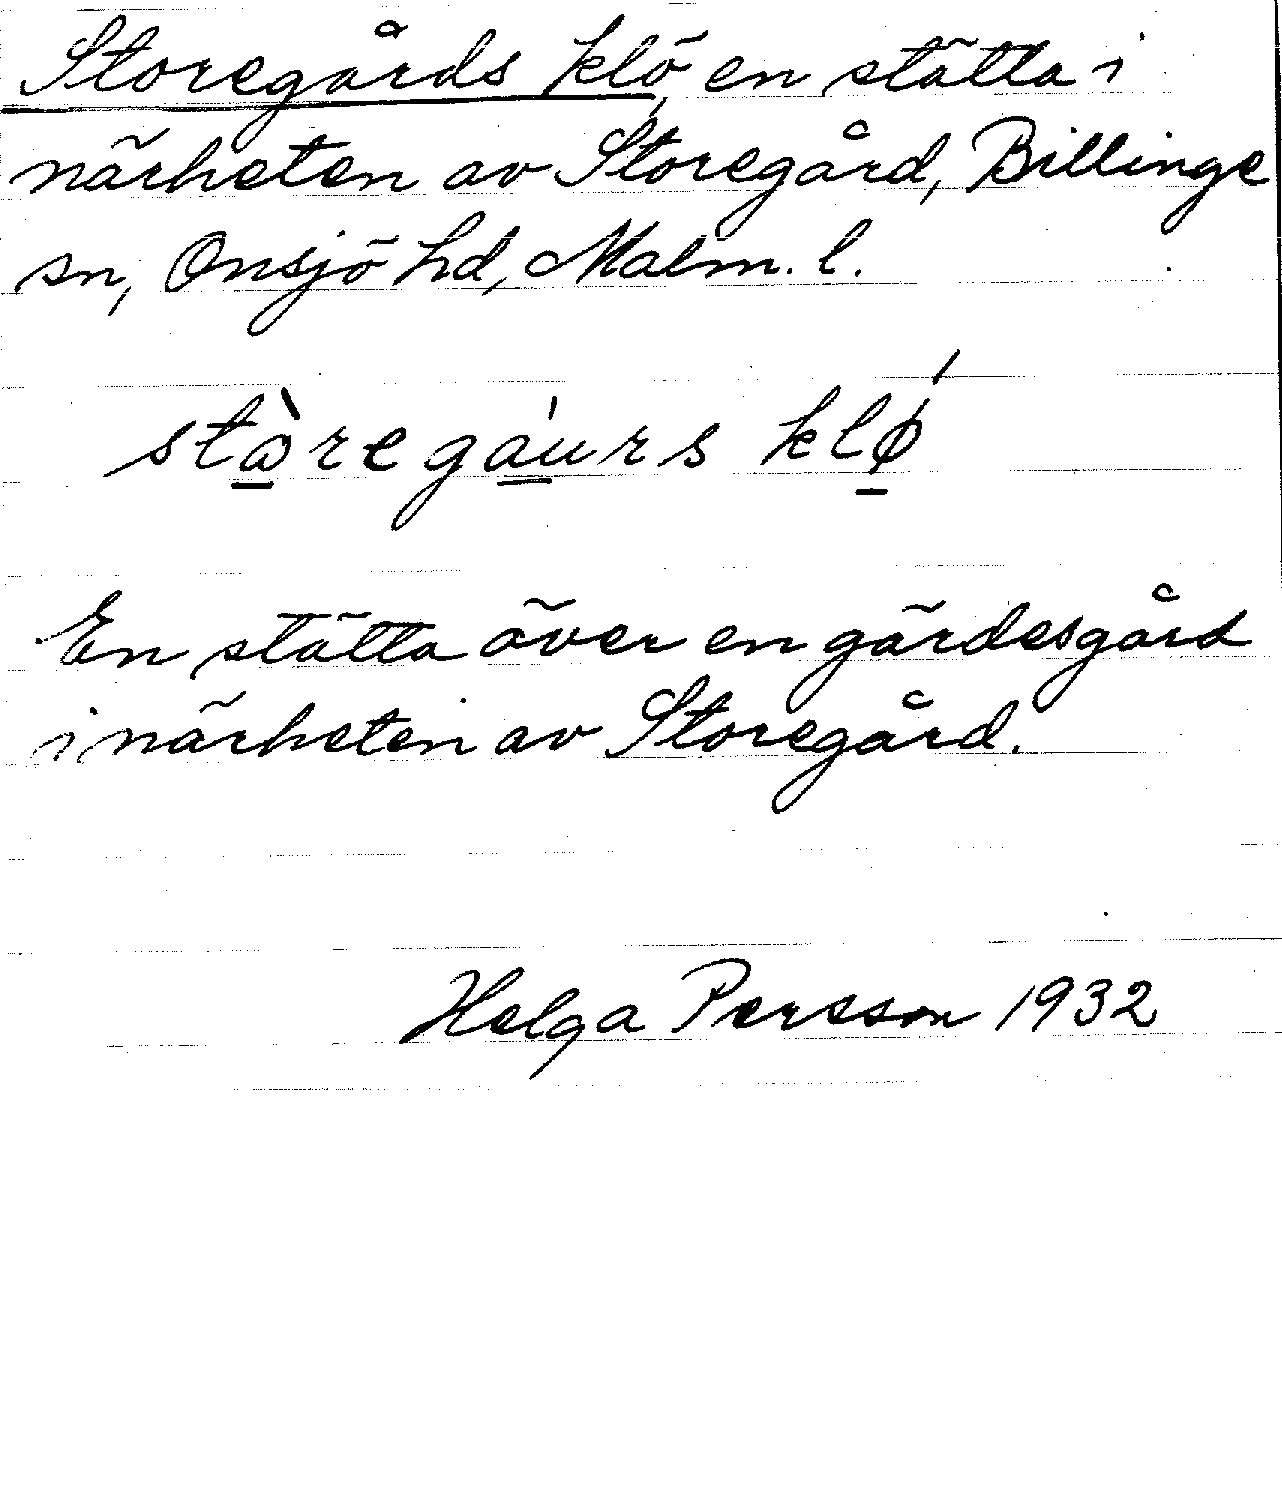 Storegårds klö, en stätta i
närheten av Storegård, Billinge
sn, Onsjö hd, Malm. l.
stàregáurs klǿ
En stätta över en gärdesgård
i närheten av Storegård.
Helga Persson 1932